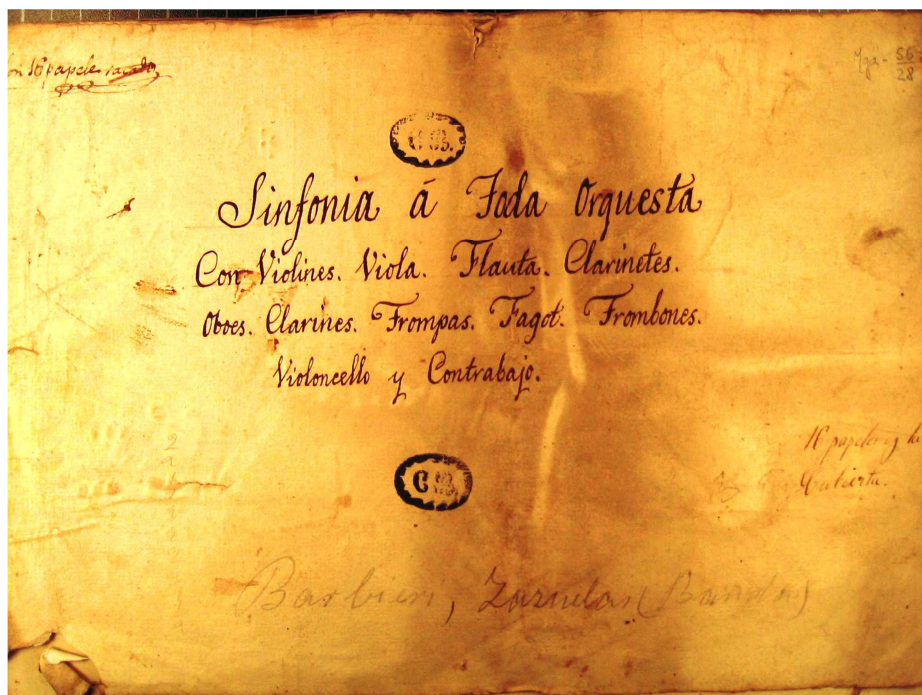 16 papeles
56
28
Sinfonia á Toda Orquesta
Con Violines. Viola. Flauta. Clarinetes.
Oboes. Clarines. Trompas. Fagot. Trombones.
Violoncello y Contrabajo.
16 papeles y
Cubierta.
C
Barbieri, Zarzuelas (Banda)